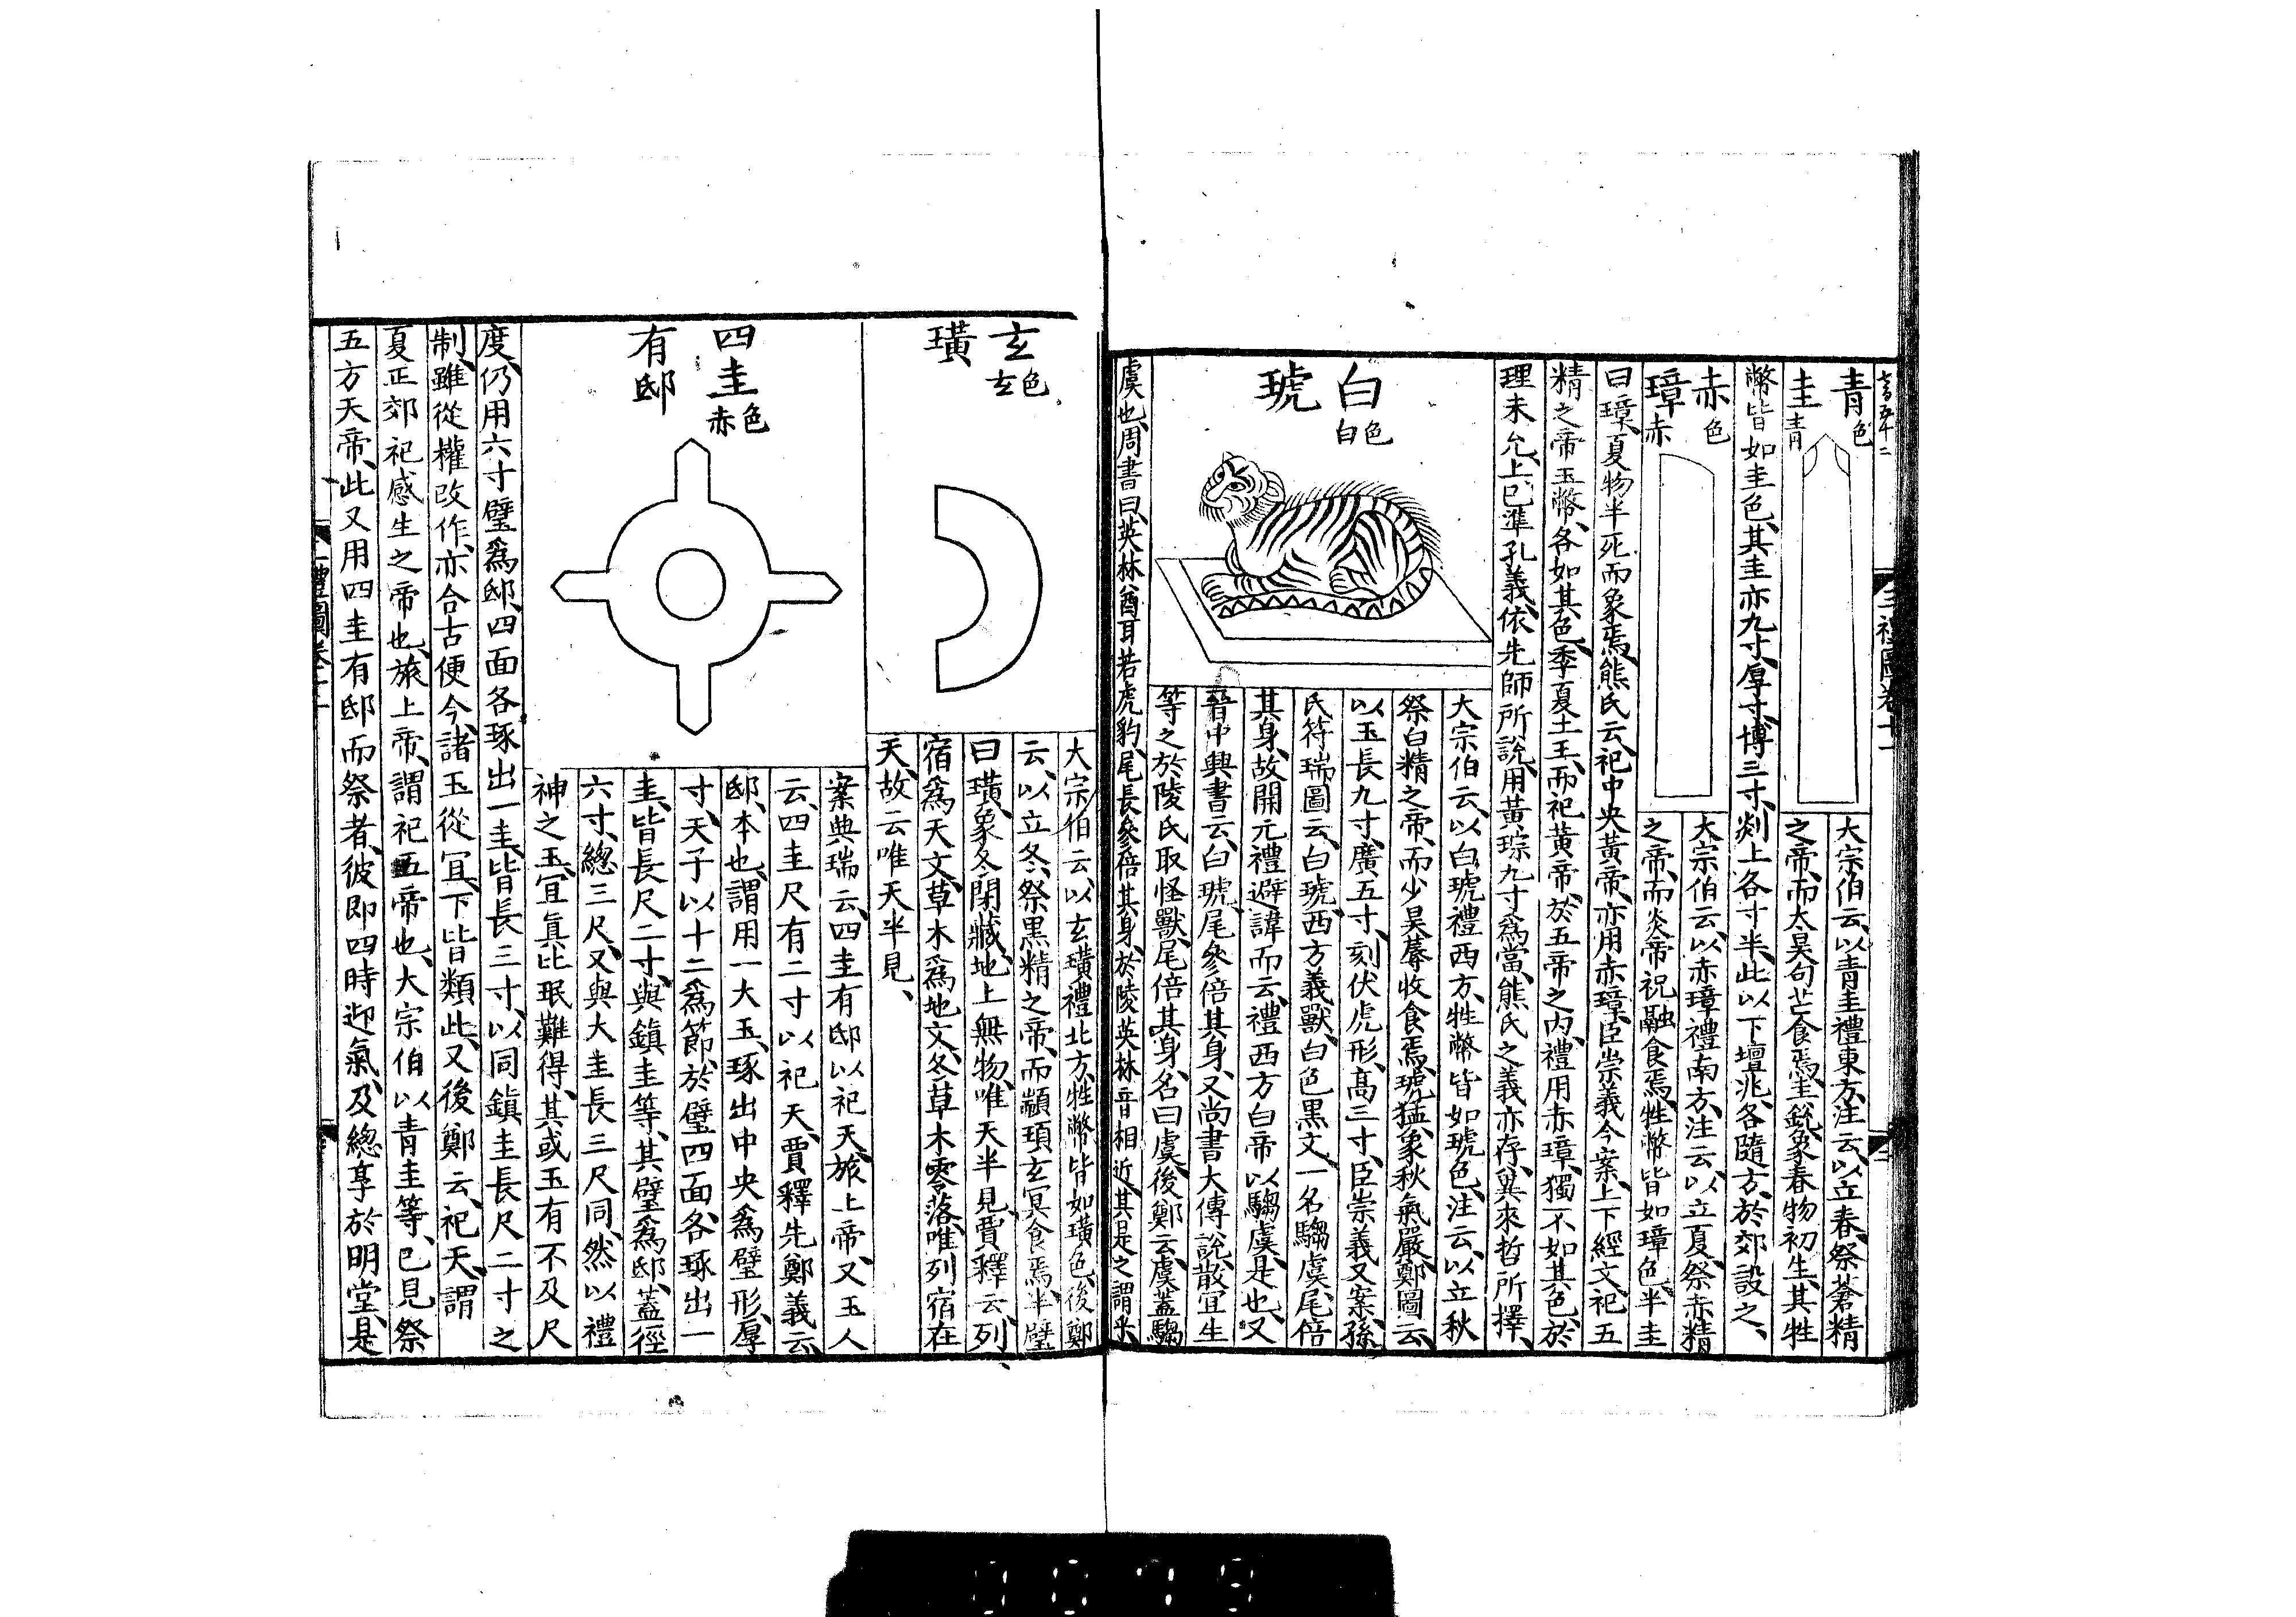 青
圭
青色
大宗伯云以青圭禮東方注云以立春祭蒼精
之帝而太昊句芒食焉圭銳象春物初生其牲
幣皆如圭色其圭亦九寸厚寸博三寸剡上各寸半此以下壇兆各隨方於郊設之
赤
璋
赤色
大宗伯云以赤璋禮南方注云以立夏祭赤精
之帝而炎帝祝融食焉牲幣皆如璋色半圭
曰璋夏物半死而象焉熊氏云祀中央黃帝亦用赤璋臣崇義今案上下經文祀五
精之帝玉幣各如其色季夏土王而祀黃帝於五帝之內禮用赤璋獨不如其色於
理未允上已準孔義依先師所說用黃琮九寸為當熊氏之義亦存冀來哲所擇
白
琥
白色
大宗伯云以白琥禮西方牲幣皆如琥色注云以立秋
祭白精之帝而少昊蓐收食焉琥猛象秋氣嚴鄭圖云
以玉長九寸廣五寸刻伏虎形高三寸臣崇義又案孫
氏符瑞圖云白琥西方義獸白色黑文一名騶虞尾倍
其身故開元禮避諱而云禮西方白帝以騶虞是也又
晉中興書云白琥尾參倍其身又尚書大傳說散宜生
等之於陵氏取怪獸尾倍其身名曰虞後鄭云虞蓋騶
虞也周書曰英林酋耳若虎豹尾長參倍其身於陵英林音相近其是之謂乎
玄
璜
玄色
大宗伯云以玄璜禮北方牲幣皆如璜色後鄭
云以立冬祭黑精之帝而顓頊玄冥食焉半璧
曰璜象冬閉藏地上無物唯天半見賈釋云列
宿為天文草木為地文冬草木零落唯列宿在
天故云唯天半見
四圭
有邸
赤色
案典瑞云四圭有邸以祀天旅上帝又玉人
云四圭尺有二寸以祀天賈釋先鄭義云
邸本也謂用一大玉琢出中央為璧形厚
寸天子以十二為節於璧四面各琢出一
圭皆長尺二寸與鎮圭等其璧為邸蓋徑
六寸總三尺又與大圭長三尺同然以禮
神之玉宜真比珉難得其或玉有不及尺
度仍用六寸璧為邸四面各琢出一圭皆長三寸以同鎮圭長尺二寸之
制雖從權改作亦合古便今諸玉從宜下皆類此又後鄭云祀天謂
夏正郊祀感生之帝也旅上帝謂祀五帝也大宗伯以青圭等已見祭
五方天帝此又用四圭有邸而祭者彼即四時迎氣及總享於明堂是
0079